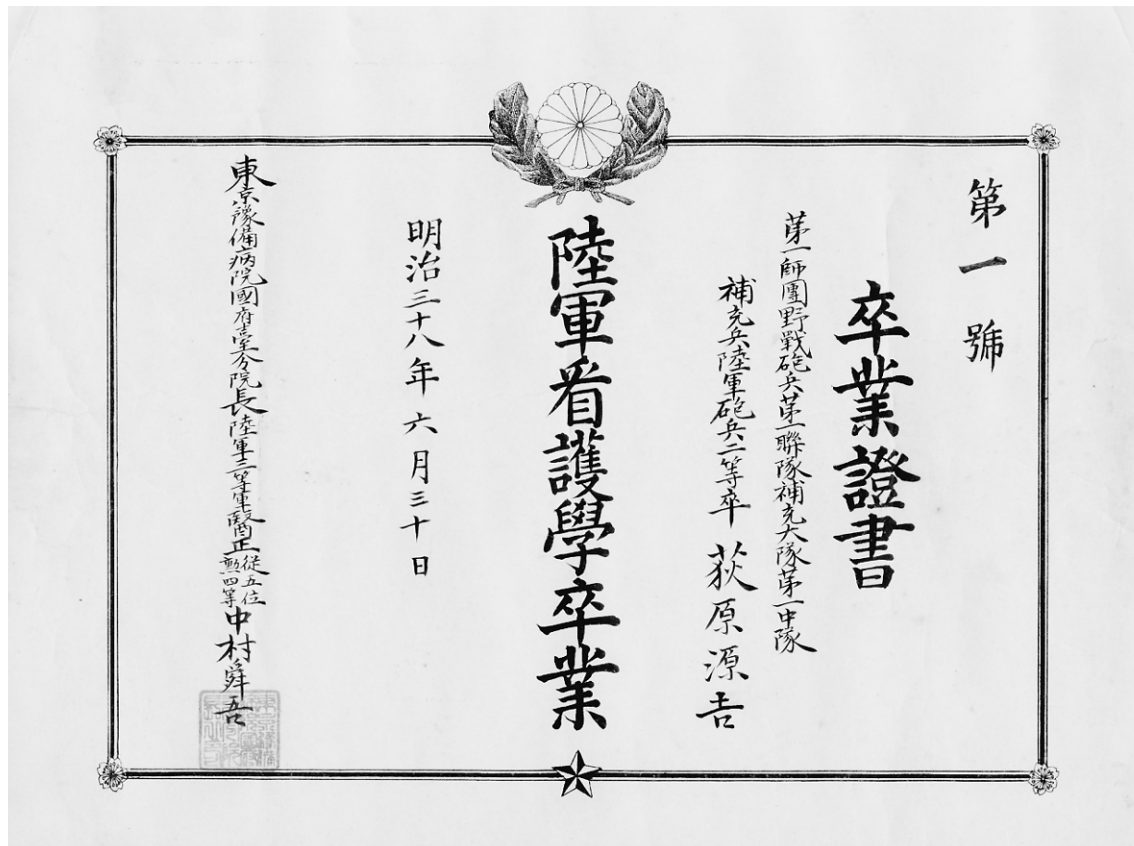 第一號
卒業證書
第一師團野戰砲兵第一聯隊補充大隊第一中隊
補充兵陸軍砲兵二等卒 荻原源吉
陸軍看護學卒業
明治三十八年六月三十日
東京豫備病院國府臺分院長陸軍三等軍醫正從五位勲四等中村舜吾